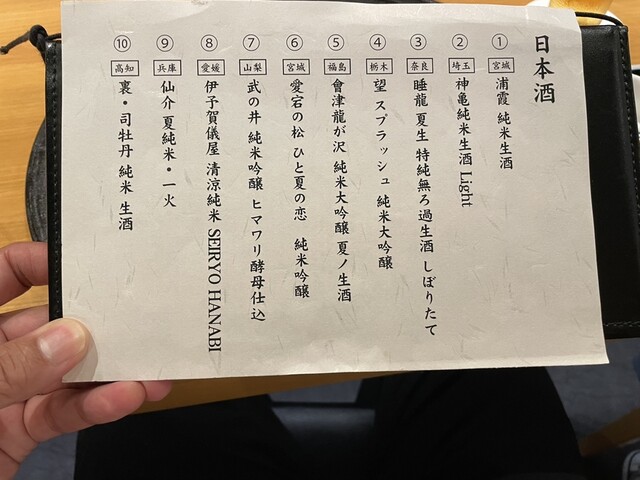 日本酒
① 宮城 浦霞 純米生酒
② 埼玉 神亀純米生酒 Light
③ 奈良 睡龍 夏生 特純無ろ過生酒 しぼりたて
④ 栃木 望 スプラッシュ 純米大吟醸
⑤ 福島 會津龍が沢 純米大吟醸 夏ノ生酒
⑥ 宮城 愛宕の松 ひと夏の恋 純米吟醸
⑦ 山梨 武の井 純米吟醸 ヒマワリ酵母仕込
⑧ 愛媛 伊予賀儀屋 清涼純米 SEIRYO HANABI
⑨ 兵庫 仙介 夏純米・一火
⑩ 高知 裏・司牡丹 純米 生酒